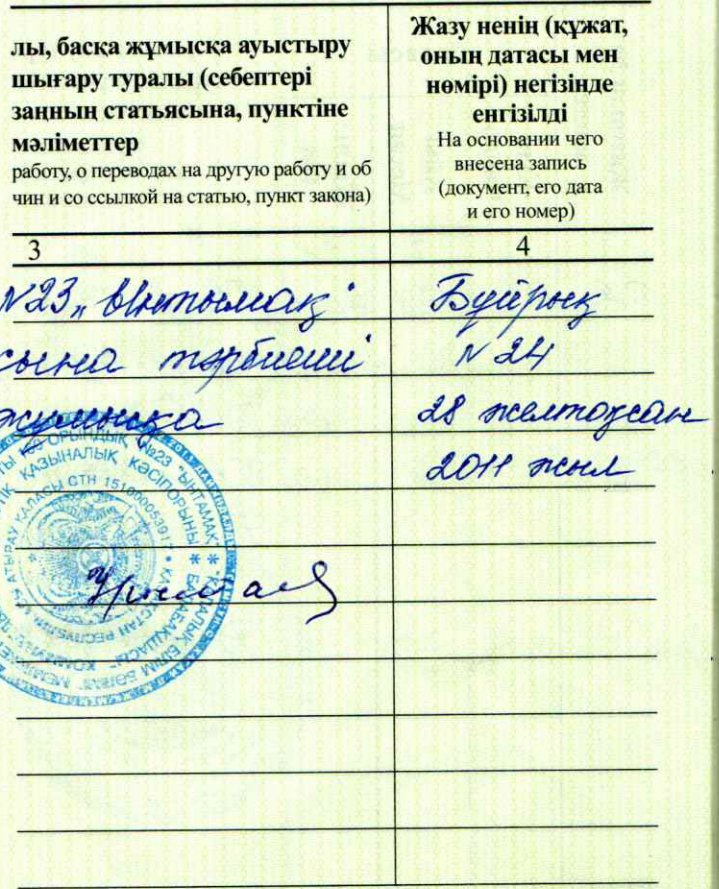 лы, басқа жұмысқа ауыстыру
шығару туралы (себептері
заңның статьясына, пунктіне
мәліметтер
работу, о переводах на другую работу и об
чин и со ссылкой на статью, пункт закона)
Жазу ненің (құжат,
оның датасы мен
нөмірі) негізінде
енгізілді
На основании чего
внесена запись
(документ, его дата
и его номер)
3
4
N23 „Ынтымақ"
Бұйрық
сына тәрбиеші
N 24
жұмысқа
28 желтоқсан
2011 жыл
ОРЫНДЫҚ №23 "ЫНТАМАҚ"
ҚАЗЫНАЛЫҚ КӘСІПОРЫНЫ
АТЫРАУ ҚАЛАСЫ СТН 151000053917